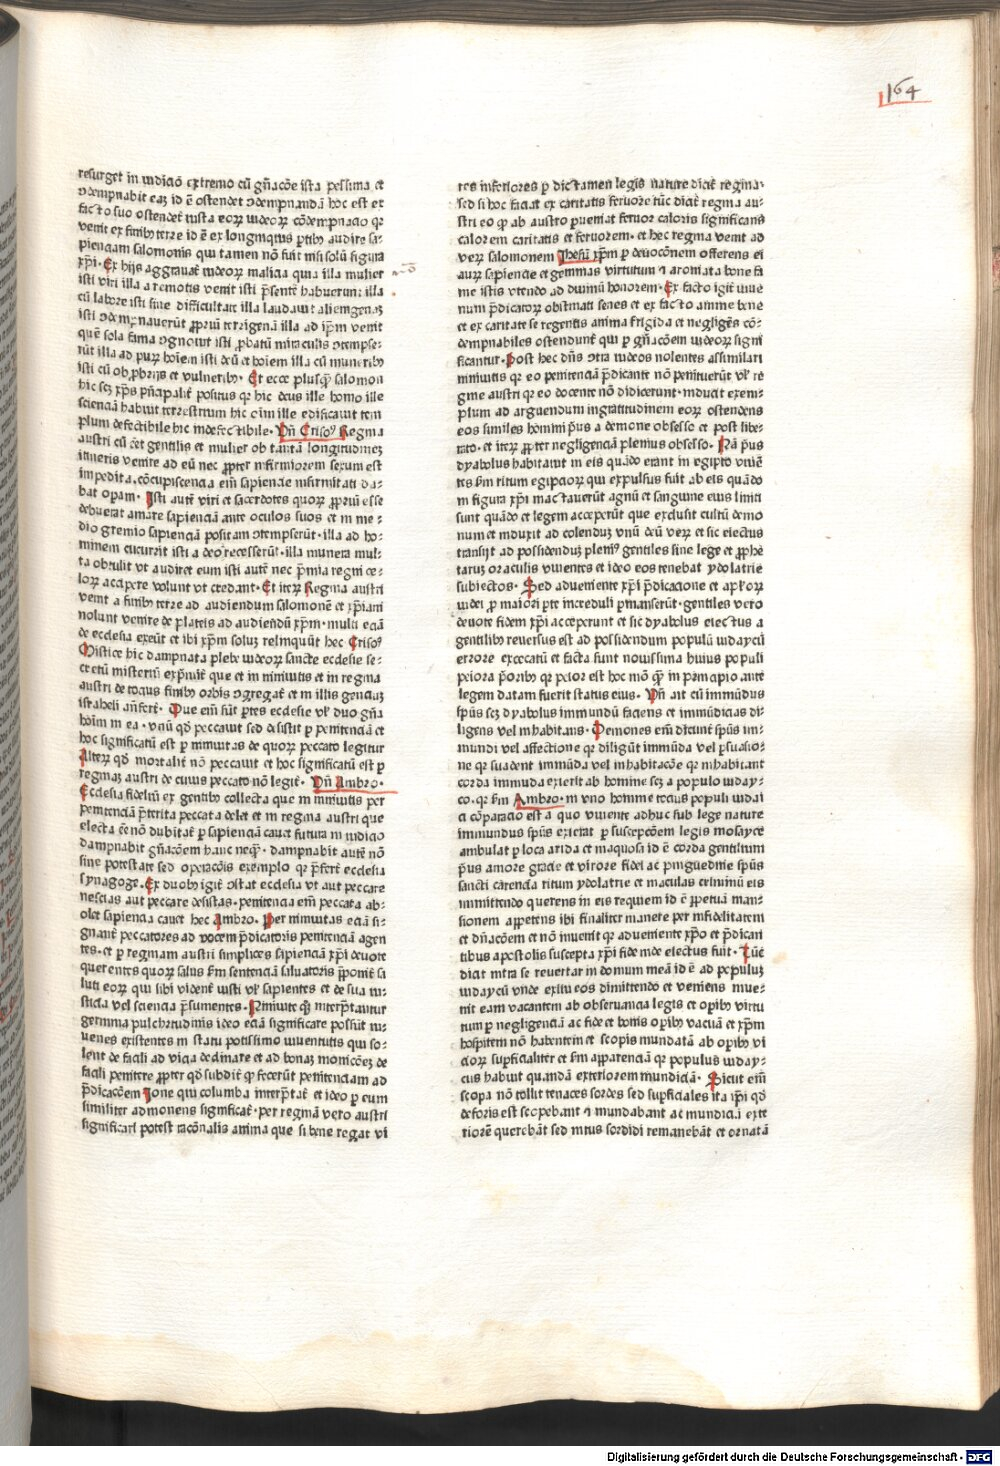 164
resurget in iudicio extremo cū gn̄acōe ista pessima et
ↄdempnabit eaꝫ id ē ostendet ↄdempnandā hoc est ex
facto suo ostendet iusta eoꝝ iudeoꝝ cōdempnacio qꝛ
venit ex finibꝰ terre id ē ex longinquis ptibꝰ audire sa-
pienciam salomonis qui tamen nō fuit nisi solū figura
xp̄i. Ex hijs aggrauat iudeoꝝ malicia quia illa mulier
isti viri illa a remotis venit isti p̄sentē habuerunt illa
cū labore isti sine difficultate illa laudauit alienigenā
isti ↄdempnauerūt ꝓpriū terrigenā illa ad ip̄m venit
quē sola fama ↄgnouit isti ꝓbatū miraculis ↄtempse-
rūt illa ad puꝝ hoīem isti deū et hoīem illa cū muneribꝰ
isti cū obꝓbrijs et vulneribꝰ. Et ecce plusqꝫ salomon
hic scꝫ xp̄s pn̄cipalit positus qꝛ hic deus ille homo ille
scienciā habuit terrestrium hic celestium ille edificauit tem
plum defectibile hic indefectibile. Vn̄ Crisoꝰ Regina
austri cū eēt gentilis et mulier ob tantā longitudineꝫ
itineris venire ad eū nec ꝓpter infirmiorem sexum est
impedita. cōcupiscencia em̄ sapiencie infirmitati da-
bat opam. Isti autē viri et sacerdotes quoꝝ ꝓpriū esse
debuerat amare sapienciā ante oculos suos et in me-
dio gremio sapienciā positam ↄtempserūt. illa ad ho-
minem cucurrit isti a deo recesserūt. illa munera mul-
ta obtulit vt audiret eum isti autē nec p̄mia regni ce-
loꝝ accipere volunt vt credant. Et iteꝝ Regina austri
venit a finibꝰ terre ad audiendum salomonē et xp̄iani
nolunt venire de plateis ad audiendū xp̄m. multi eciā
de ecclesia exeūt et ibi xp̄m soluꝫ relinquūt hec Crisoꝰ
Mistice hic dampnata plebe iudeoꝝ sancte ecclesie se-
cretū misteriū exp̄mit que et in niniuitis et in regina
austri de tocius finibꝰ orbis ↄgregat et in illis genciuꝫ
israheli an̄fert. Due em̄ sūt ptes ecclesie vl̄ duo gn̄a
hoīm in ea. vnū qd̓ peccauit sed desistit p penitenciā et
hoc significatū est p niniuitas de quoꝝ peccato legitur
Alteꝝ qd̓ mortalit̓ nō peccauit et hoc significatū est p
reginaꝫ austri de cuius peccato nō legit̓. Vn̄ Ambro.
Ecclesia fideliū ex gentibꝰ collecta que in niniuitis per
penitenciā p̄terita peccata delet et in regina austri que
electa eē nō dubitat̓ p sapienciā cauet futura in iudicio
dampnabit gn̄acōem hanc nequā. dampnabit autē nō
sine potestate sed opacōis exemplo qꝛ p̄fert̓ ecclesia
synagoge. Ex duobꝰ igit̓ ↄstat ecclesia vt aut peccare
nesciat aut peccare desistat. penitencia em̄ peccata ab-
olet sapiencia cauet hec Ambro. Per niniuitas eciā si-
gnant̓ peccatores ad vocem p̄dicatoris penitenciā agen
tes. et p reginam austri simplices sapienciā xp̄i deuote
querentes quoꝝ salus sm̄ sentenciā saluatoris ꝓponit̓ sa
luti eoꝝ qui sibi vident̓ iusti vl̓ sapientes et de sua iu-
sticia vel sciencia p̄sumentes. Niniuite qꝫ interp̄tantur
germina pulchritudinis ideo eciā significare possūt iu-
uenes existentes in statu potissimo iuuentutis qui so-
lent de facili ad vicia declinare et ad bonaꝫ monicōeꝫ de
facili penitere ꝓpter qd̓ subdit̓ qꝛ fecerūt penitenciam ad
p̄dicacōem Ione qui columba interp̄tat̓ et ideo p eum
similiter admonens significat̓. per reginā vero austri
significari potest racōnalis anima que si bene regat vi
res inferiores p dictamen legis nature dicit̓ regina.
sed si hoc faciat ex caritatis feruore tūc dicit̓ regina au-
stri eo qꝛ ab austro pueniat feruor caloris significans
calorem caritatis et feruorem. et hec regina venit ad
veꝝ salomonem Ihesū xp̄m p deuocōnem offerens ei
auꝝ sapiencie et gemmas virtutum ⁊ aromata bone fa
me istis vtendo ad diuinū honorem. Ex facto igit̓ niue
num p̄dicatoꝝ obstinati senes et ex facto anime bene
et ex caritate se regentis anima frigida et negligēs cō-
dempnabiles ostendunt̓ qui p gn̄acōem iudeoꝝ signi
ficantur. Post hec dn̄s ↄtra iudeos nolentes assimilari
niniuitis qꝛ eo penitenciā p̄dicante nō penituerūt vl̓ re
gine austri qꝛ eo docente nō didicerunt. inducit exem-
plum ad arguendum ingratitudinem eoꝝ ostendens
eos similes homini p̓us a demone obsesso et post libe-
rato. et iteꝝ ꝓpter negligenciā plenius obsesso. Nā p̓us
dyabolus habitauit in eis quādo erant in egipto viuē-
tes sm̄ ritum egipcioꝝ qui expulsus fuit ab eis quādo
in figura xp̄i mactauerūt agnū et sanguine eius liniti
sunt quādo et legem acceperūt que exclusit cultū demo
num et induxit ad colenduꝫ vnū deū veꝝ et sic eiectus
transijt ad possidenduꝫ pleniꝰ gentiles sine lege et ꝓphe
taruꝫ oraculis viuentes et ideo eos tenebat ydolatrie
subiectos. Sed adueniente xp̄i p̄dicacione et apl̓oꝝ
iudei ꝓ maiori pte increduli pmanserūt. gentiles vero
deuote fidem xp̄i acceperunt et sic dyabolus eiectus a
gentilibꝰ reuersus est ad possidendum populū iudaycū
errore excecatū et facta sunt nouissima huius populi
peiora p̓oribꝰ qꝛ peior est hoc mō qꝫ in principio ante
legem datam fuerit status eius. Vn̄ ait cū inmūdus
sp̄us scꝫ dyabolus immundū faciens et immūdicias di-
ligens vel inhabitans. Demones em̄ dicunt̓ sp̄us im-
mundi vel affectione qꝛ diligūt immūda vel psuasio-
ne qꝛ suadent immūda vel inhabitacōe qꝛ inhabitant
corda immuda exierit ab homine scꝫ a populo iuday-
co. qꝛ sm̄ Ambro. in vno homine tocius populi iudai
ci cōparacio est a quo viuente adhuc sub lege nature
immundus sp̄us exierat p suscepcōem legis mosayce
ambulat p loca arida et inaquosa id ē corda gentilium
p̓us amore gracie et virore fidei ac pinguedine sp̄us
sancti carencia ritum ydolatrie et maculas criminū eis
inmittendo querens in eis requiem id ē ꝑpetuā man-
sionem appetens ibi finaliter manere per infidelitatem
et dn̄acōem et nō inuenit qꝛ adueniente xp̄o et p̄dicari
tibus apostolis suscepta xp̄i fide inde eiectus fuit. Tūc
dicit intra se reuertar in domum meā id ē ad populuꝫ
iudaycū vnde exiui eos dimittendo et veniens inue-
nit eam vacantem ab obseruancia legis et opibꝰ virtu
tum p negligenciā ac fide et bonis opibꝰ vacuā et xp̄m
hospitem nō habentem et scopis mundatā ab opibꝰ vi
cioꝝ supficialiter et sm̄ apparenciā qꝛ populus iuday-
cus habuit quandā exteriorem mundiciā. Sicut em̄
scopa nō tollit tenaces sordes sed supficiales ita ip̄i qd̓
deforis est scopebant ⁊ mundabant ac mundiciā exte
riorē querebāt sed intus sordidi remanebāt et ornatā
Digitalisierung gefördert durch die Deutsche Forschungsgemeinschaft - DFG